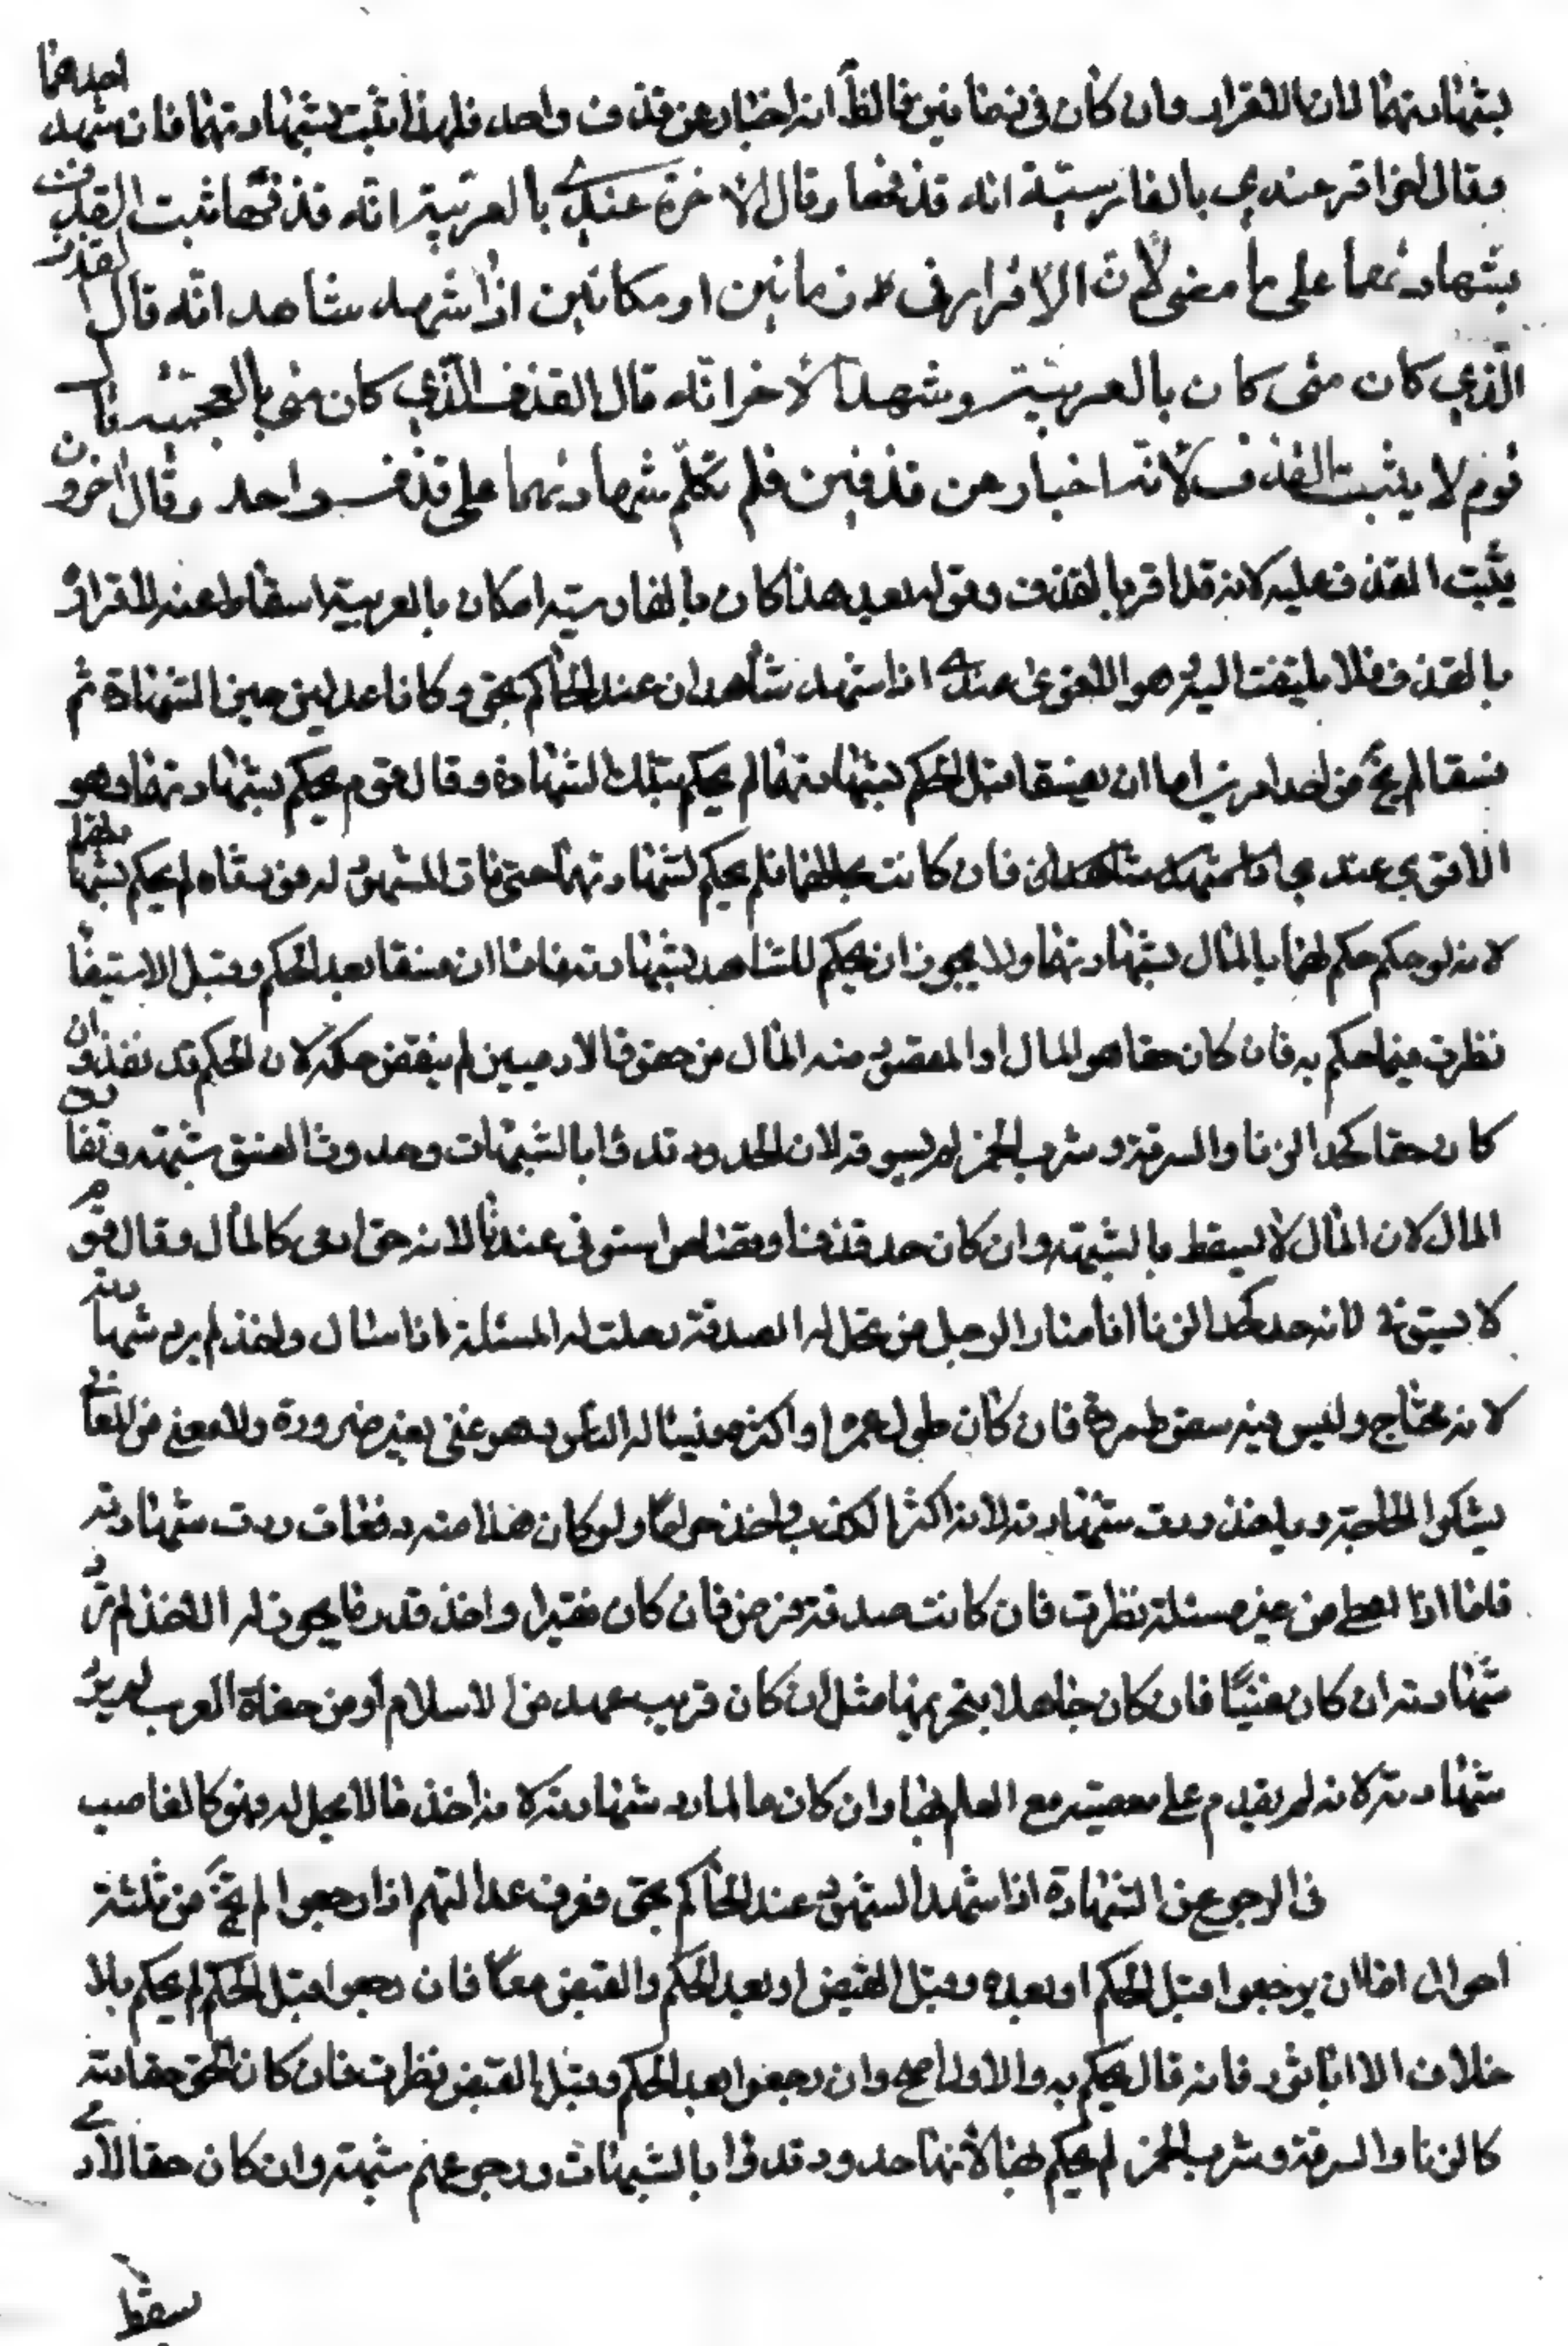 بشهادتهما لان الاقرار وان كان في زمانين فالظ انه اخبار عن قذف واحد فلهذا يثبت بشهادتهما فان شهد احدهما
وقال اخر اقر عندي بالفارسية انه قذفها وقال الاخر عندي بالعربية انه قذفها ثبت القذف
بشهادتهما على ما مضى لان الاقرار في زمانين او مكانين اذا شهد شاهد انه قال القذف
الذي كان منى كان بالعربية وشهد الاخر انه قال القذف الذي كان منى بالعجمية قال
قوم لا يثبت القذف لانه اخبار عن قذفين فلم تكلم شهادتهما على قذف واحد وقال اخرون
يثبت القذف عليه لانه قد اقر بالقذف وقوله بعد هذا كان بالفارسية او كان بالعربية اسقاط عنه الاقرار
بالقذف فلا يلتفت اليه هو الاقوى عندي اذا شهد شاهدان عند الحاكم بحق وكانا عدلين حين الشهادة ثم
فسقا لم يخ من احد امرين اما ان يفسقا قبل الحكم بشهادتهما لم يحكم بتلك الشهادة وقال قوم يحكم بشهادتهما وهو
الاقوى عندي فان كانت بحالهما فلم يحكم بشهادتهما حتى مات المشهود له فورثاه لم يحكم بشهادتهما
لانه لو حكم حكم لهما بالمال بشهادتهما ولا يجوز ان يحكم للشاهد بشهادته فاما ان فسقا بعد الحكم وقبل الاستيفا
نظرت فيما حكم به فان كان حقا هو المال او المقصود منه المال من حقوق الادميين لم ينقض حكمه لان الحكم قد نفذ وان
كان حقا لله كحد الزنا والسرقة وشرب الخمر لم يستوفه لان الحدود تدرأ بالشبهات وحدوث الفسق شبهة وتفارق
المال لان المال لا يسقط بالشبهة وان كان حد قذف او قصاص استوفى عندنا لانه حق ادمى كالمال وقال قوم
لا يستوفى لانه حد كحد الزنا اذا صار الرجل من تحل له الصدقة وحلت له المسئلة اذا سال واخذ لم يرد شهادته
لانه محتاج وليس فيه سقوط مروة فان كان طول عمره او اكثره فيسال الناس وهو غنى بغير ضرورة ولا معنى من المعاني
يشكو الحاجة وياخذ ردت شهادته لانه اكثر الكذب واخذ حراما ولو كان هذا منه دفعات ردت شهادته
فاما اذا اعطى من غير مسئلة نظرت فان كانت صدقة فرض فان كان فقيرا واخذ قدر ما يجوز له الاخذ لم ترد
شهادته ان كان غنيا فان كان جاهلا بتحريمها مثل ان كان قريب عهد من الاسلام او من جفاة العرب لم يرد
شهادته لانه لم يقدم على معصية مع العلم بها وان كان عالما رد شهادته لانه اخذ ما لا يحل له فهو كالغاصب
في الرجوع عن الشهادة اذا شهد الشهود عند الحاكم بحق فعرف عدالتهم اذا رجعوا لم يخ من ثلثة
احوال اما ان يرجعوا قبل الحكم او بعده وقبل القبض او بعد الحكم والقبض معا فان رجعوا قبل الحكم لم يحكم بلا
خلاف الا ابا ثور فانه قال يحكم به والاول اصح وان رجعوا بعد الحكم وقبل القبض نظرت فان كان الحق حقا لله
كالزنا والسرقة وشرب الخمر لم يحكم بها لانها حدود تدرأ بالشبهات ورجوعهم شبهة وان كان حقا لاد
سقط